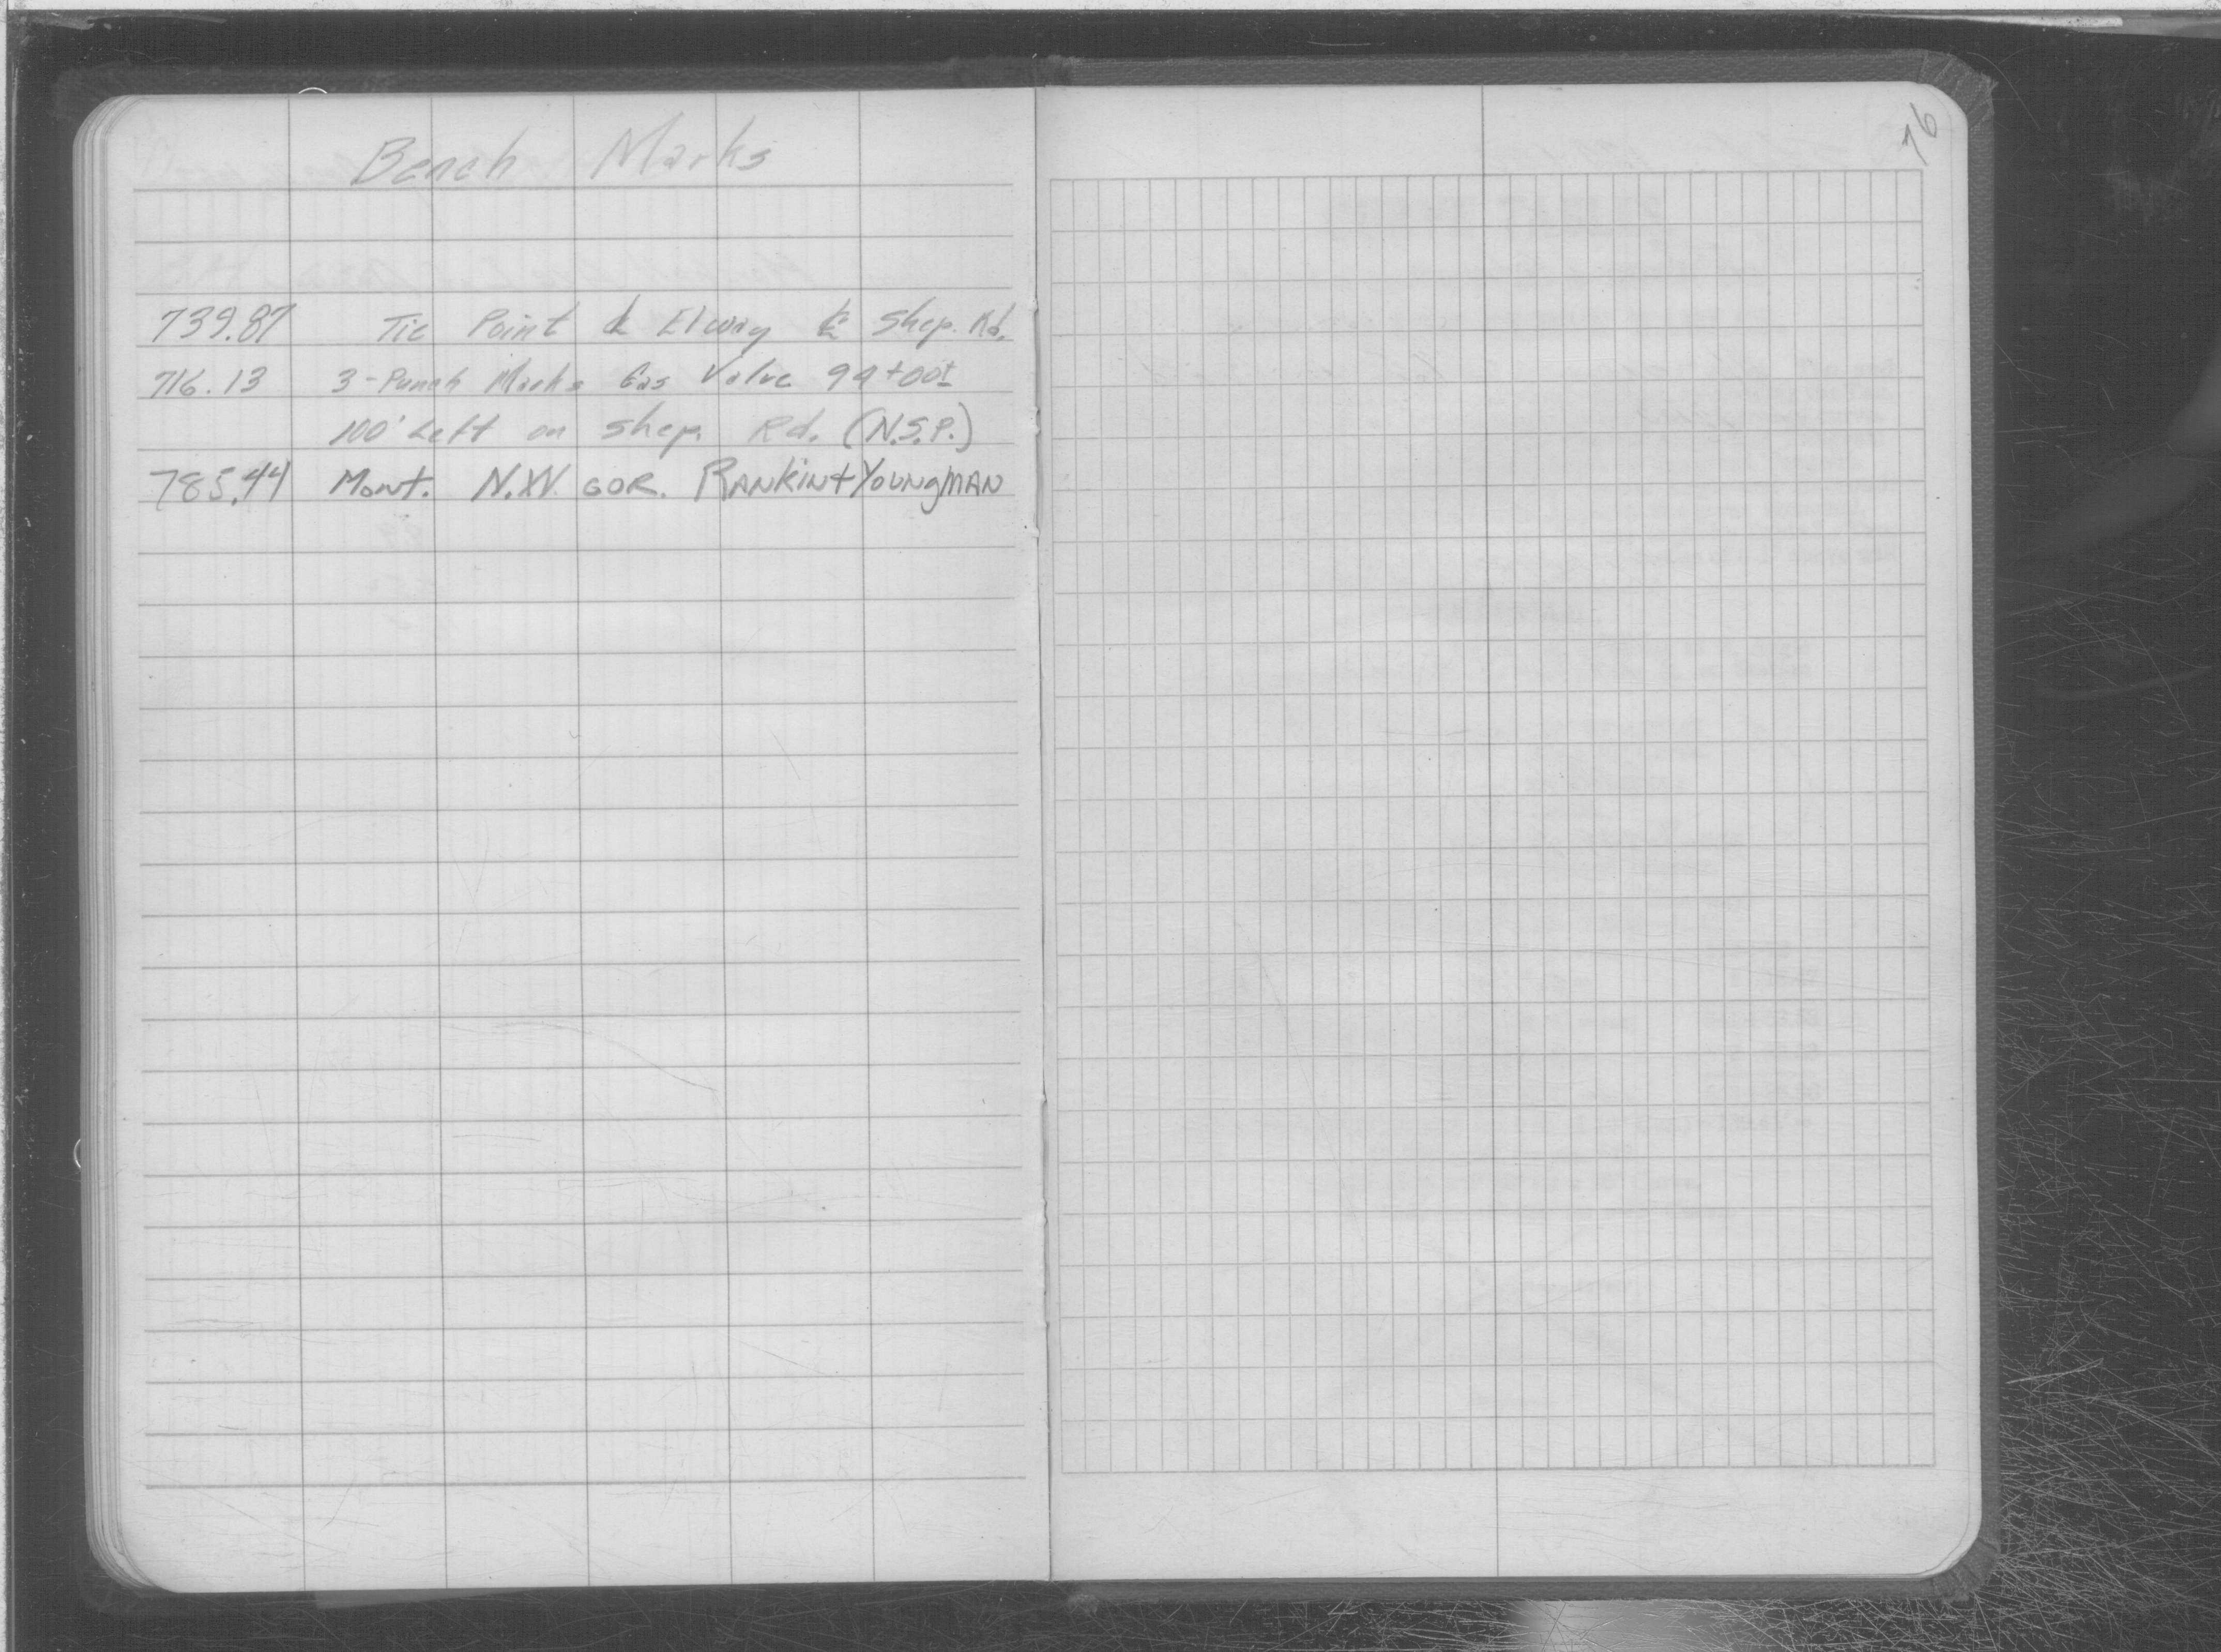 Bench Marks
739.87 Tie Point ℄ Elway ℄ Shep. Rd.
716.13 3-Punch Marks Gas Valve 94+00±
100' Left on Shep. Rd. (N.S.P.)
785.44 Mont. N.W. COR. RANKIN + YOUNGMAN
76